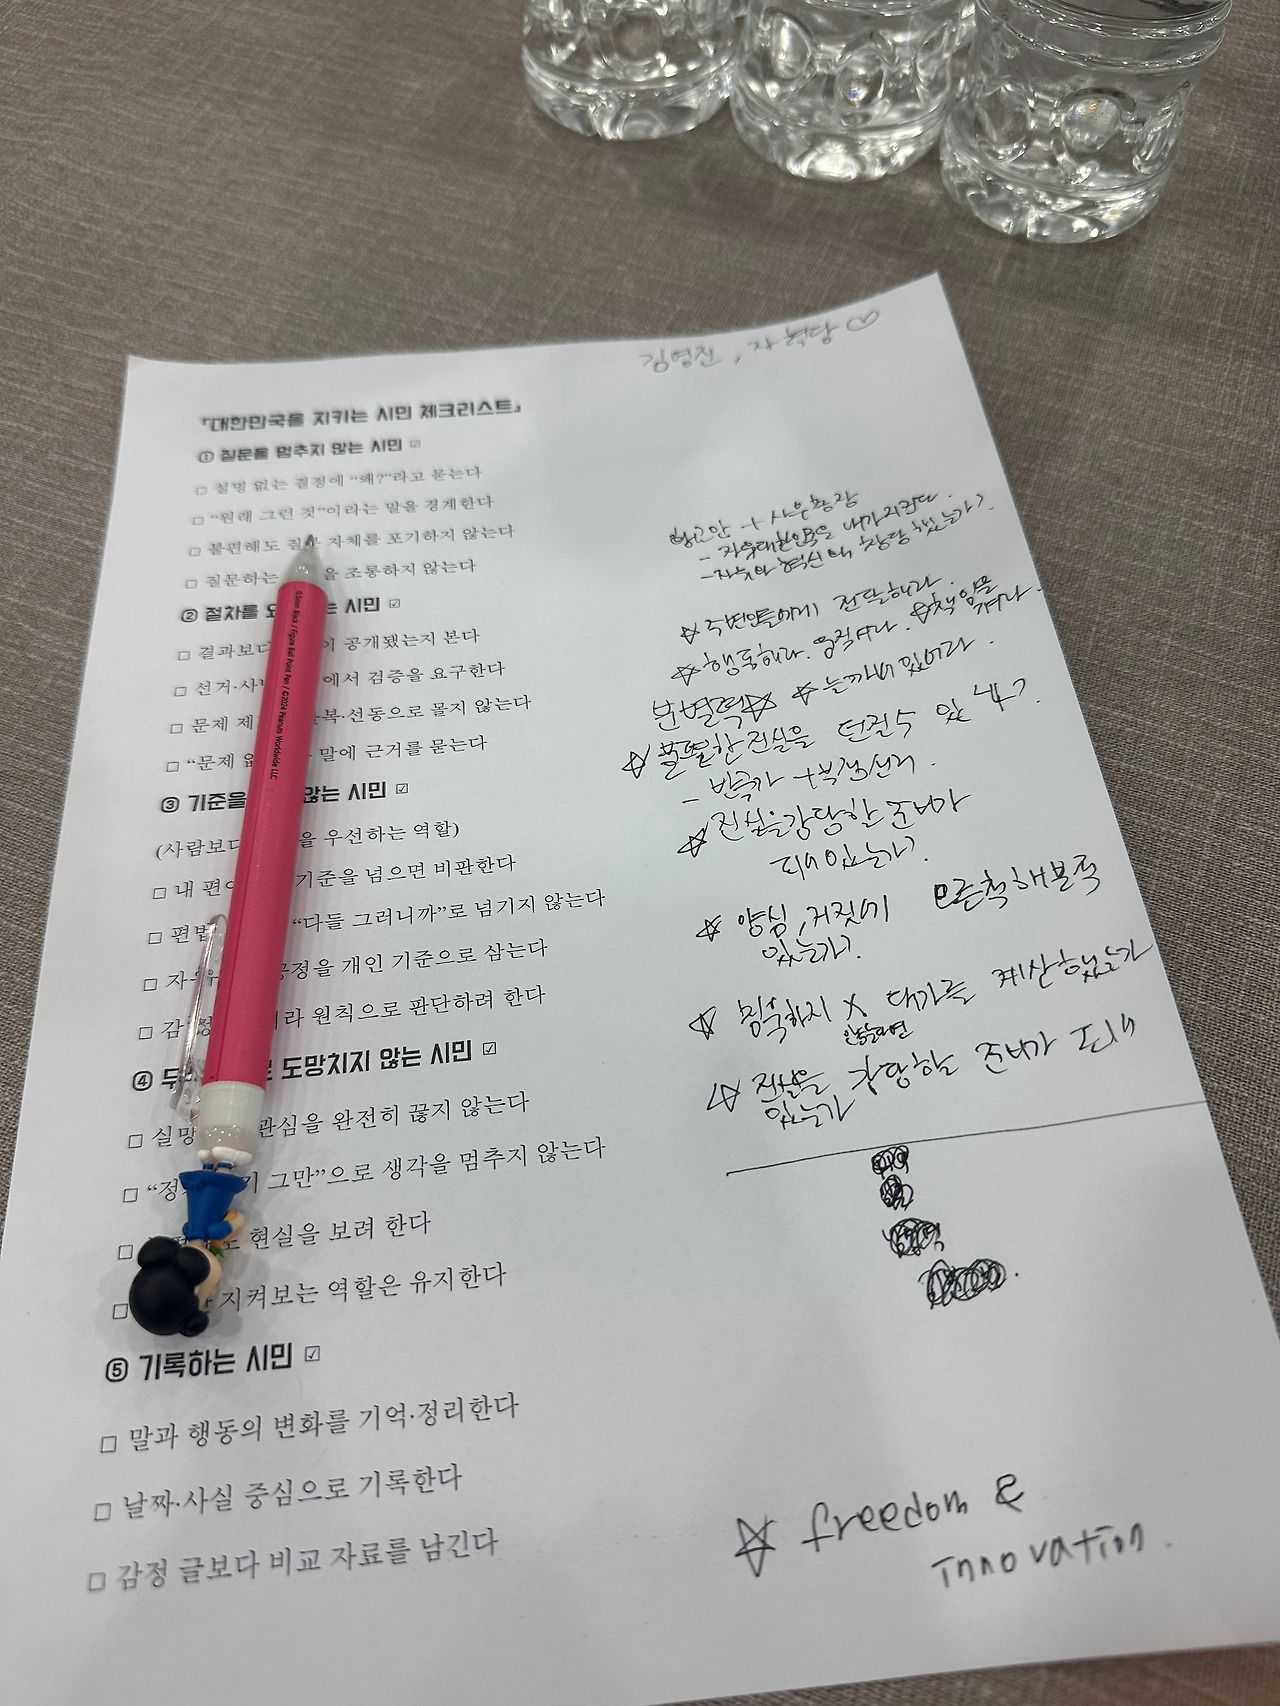 김영진, 자혁당
「대한민국을 지키는 시민 체크리스트」
① 질문을 멈추지 않는 시민 ☑
□ 설명 없는 결정에 “왜?”라고 묻는다
□ “원래 그런 것”이라는 말을 경계한다
□ 불편해도 질문 자체를 포기하지 않는다
□ 질문하는 을 조롱하지 않는다
② 절차를 는 시민 ☑
□ 결과보다 이 공개됐는지 본다
□ 선거·사 에서 검증을 요구한다
□ 문제 제 복·선동으로 몰지 않는다
□ “문제 없 말에 근거를 묻는다
③ 기준을 않는 시민 ☑
(사람보다 을 우선하는 역할)
□ 내 편이 기준을 넘으면 비판한다
□ 편법 “다들 그러니까”로 넘기지 않는다
□ 자유 공정을 개인 기준으로 삼는다
□ 감정 라 원칙으로 판단하려 한다
④ 두 로 도망치지 않는 시민 ☑
□ 실망 관심을 완전히 끊지 않는다
□ “정 기 그만”으로 생각을 멈추지 않는다
□ 도 현실을 보려 한다
□ 지켜보는 역할은 유지한다
⑤ 기록하는 시민 ☑
□ 말과 행동의 변화를 기억·정리한다
□ 날짜·사실 중심으로 기록한다
□ 감정 글보다 비교 자료를 남긴다
0.5mm Black / Figure Ball Point Pen / ©2024 Peanuts Worldwide LLC
황교안 +
- 자유대한민국은 내가 지킨다.
- 자유와 혁신 왜 창당 했는가?
☆ 주변인들에게 전달해라.
☆ 행동해라. 움직여라. ☆ 책임을 져라.
분별력 ☆ ☆ 눈까비 있어라
☆ 불편한 진실을 던질 수 있나?
- 반국가 + 부정선거.
☆ 진실을 감당할 준비가
되어 있는가?
☆ 양심, 거짓에 모른척 해본적
있는가?
☆ 침묵하지 X 대가를 계산했는가
않는다면
☆ 진실을 감당할 준비가 되어
있는가
☆ freedom &
Innovation.